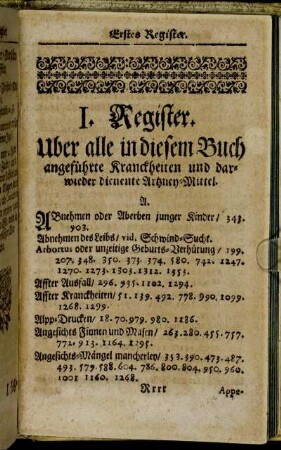 Erstes Register.
I. Register.
Uber alle in diesem Buch
angeführte Kranckheiten und dar-
wieder dienente Artzney-Mittel.
A.
ABnehmen oder Aberben junger Kinder/ 343.
903.
Abnehmen des Leibs/ vid. Schwind-Sucht.
Abortus oder unzeitige Geburts-Verhütung/ 199.
207. 348. 350. 373. 374. 580. 742. 1247.
1270. 1273. 1303. 1312. 1353.
Affter Ausfall/ 296. 935. 1102. 1294.
Affter Kranckheiten/ 51. 139. 492. 778. 990. 1099.
1268. 1299.
Alpp-Drucken/ 18. 70. 979. 980. 1186.
Angesichts Finnen und Masen/ 263. 280. 455. 757.
772. 913. 1164. 1195.
Angesichts-Mängel mancherley/ 353. 390. 473. 487.
493. 579. 588. 604. 786. 800. 804. 950. 960.
1001 1160. 1268.
Rrrr
Appe-